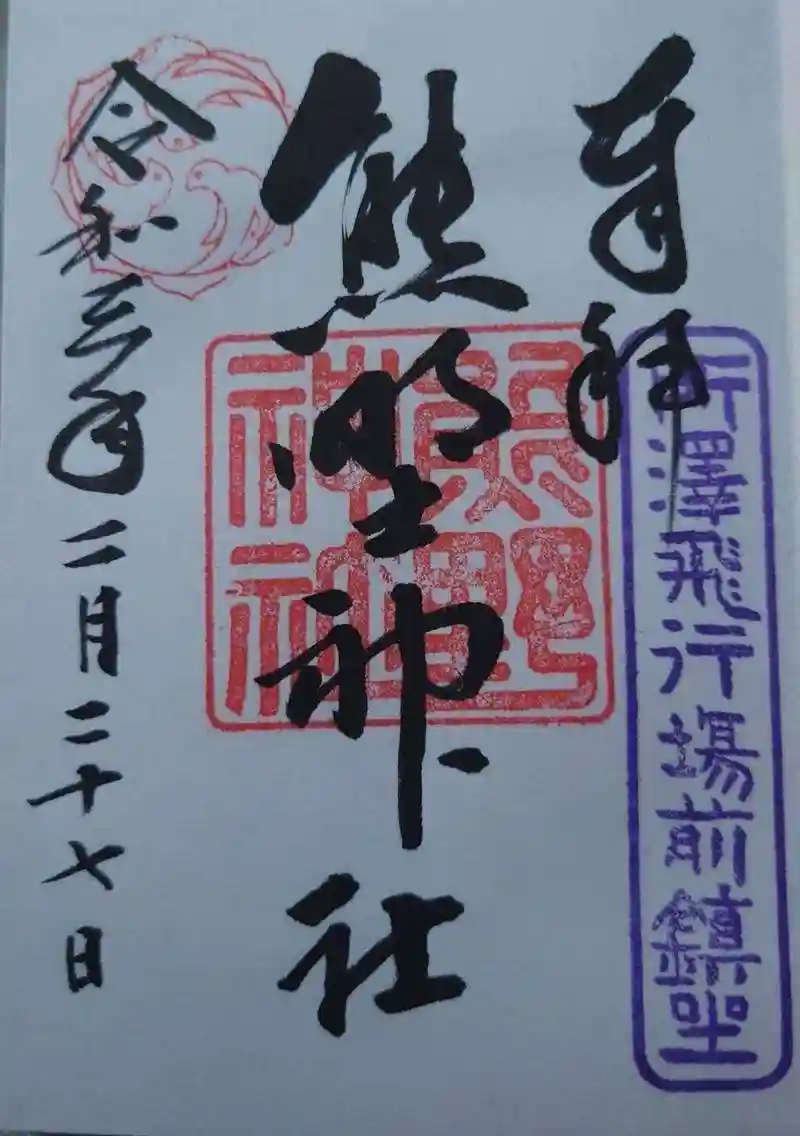 奉拝
所澤飛行場前鎮座
熊野神社
熊野
神社
令和三年二月二十七日